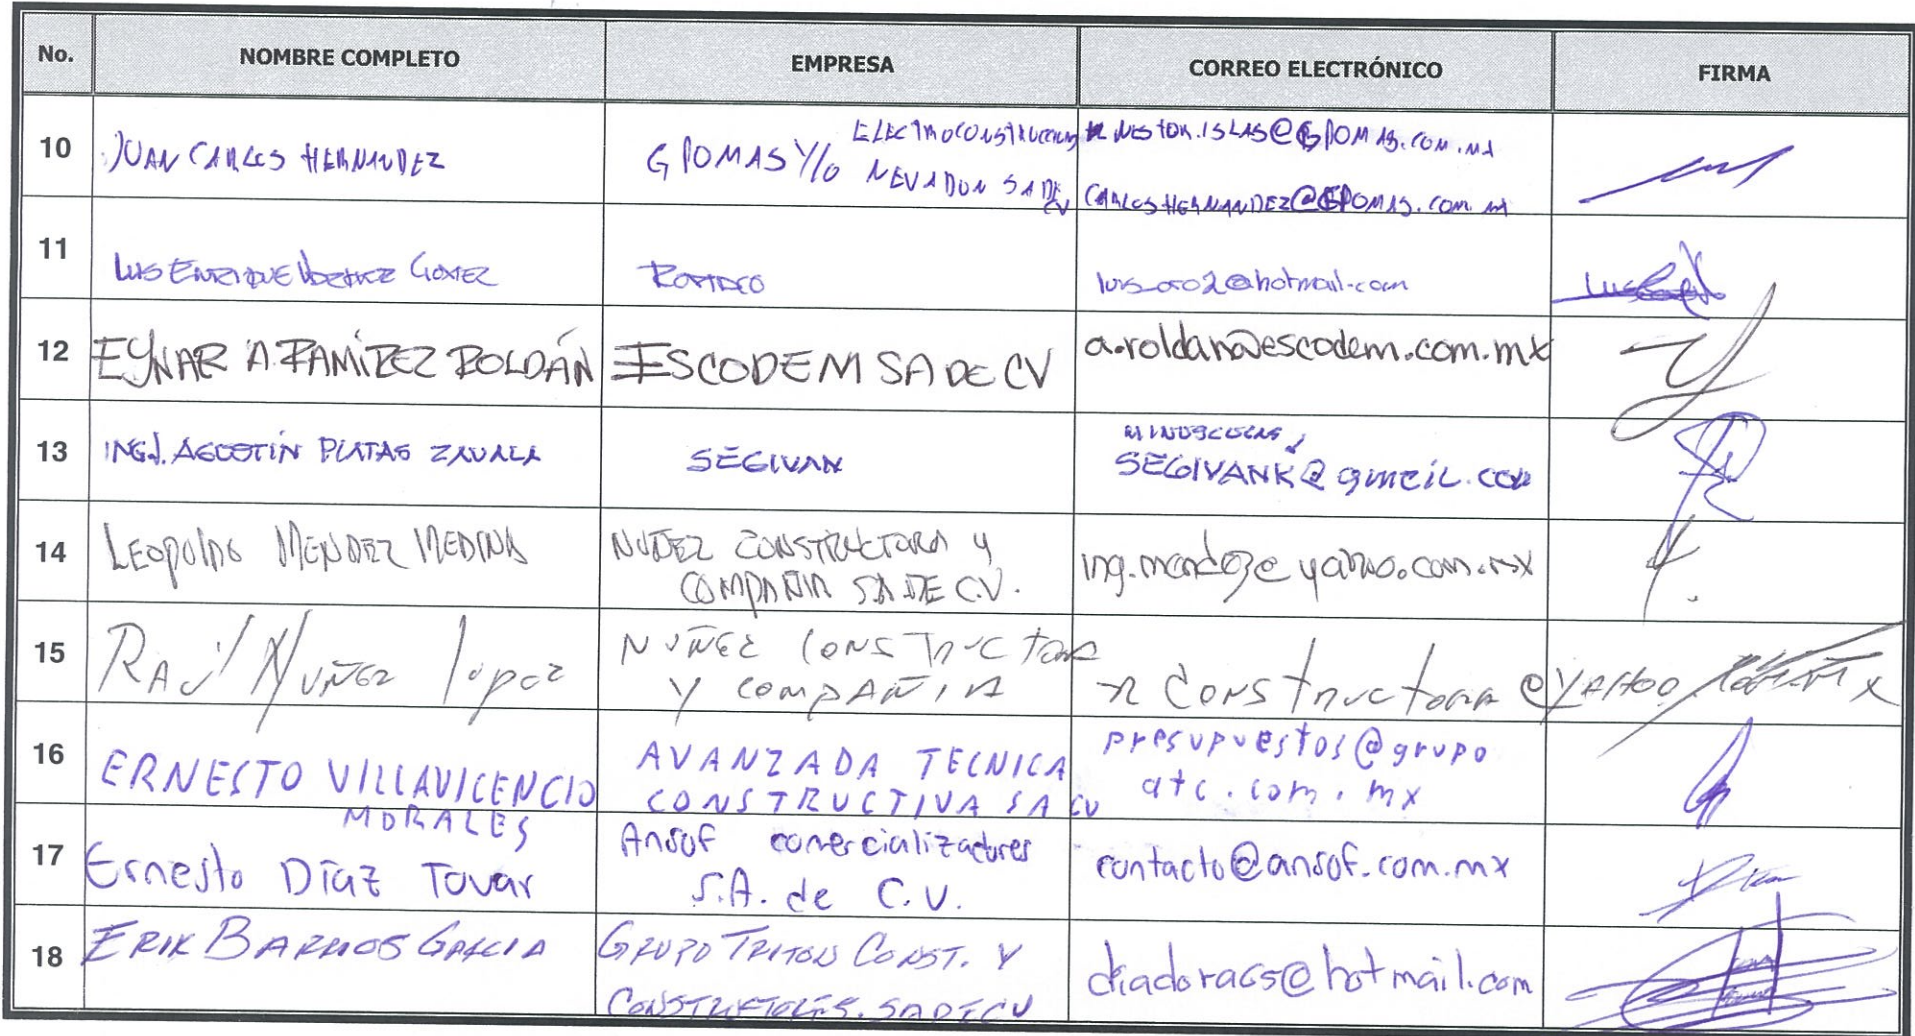 No. NOMBRE COMPLETO EMPRESA CORREO ELECTRÓNICO FIRMA
10 JUAN CARLOS HERNANDEZ GPOMAS Y/O ELECTROCONSTRUCCIONES NEVADON SA DE CV NESTOR.ISLAS@GPOMAS.COM.MX
CARLOSHERNANDEZ@GPOMAS.COM.MX
11 LUIS ENRIQUE GOMEZ luis_oro2@hotmail.com
12 EYNAR A. RAMÍREZ ROLDÁN ESCODEM SA DE CV a.roldan@escodem.com.mx
13 ING. AGUSTÍN PLATAS ZAVALA SEGIVAN MINUSCULAS
SEGIVANK@gmail.com
14 LEOPOLDO MENDEZ MEDINA NUÑEZ CONSTRUCTORA Y
COMPAÑIA SA DE C.V. @yahoo.com.mx
15 RAUL NUÑEZ lopez NUÑEZ CONSTRUCTORA
Y COMPAÑIA constructora@YAHOO
16 ERNESTO VILLAVICENCIO
MORALES AVANZADA TECNICA
CONSTRUCTIVA SA CV presupuestos@grupo
atc.com.mx
17 Ernesto Díaz Tovar Ansof comercializadores
S.A. de C.V. contacto@ansof.com.mx
18 ERIK BARRIOS GARCIA GRUPO TRITON CONST. Y
CONSTRUCTORES. SA DE CV @hotmail.com